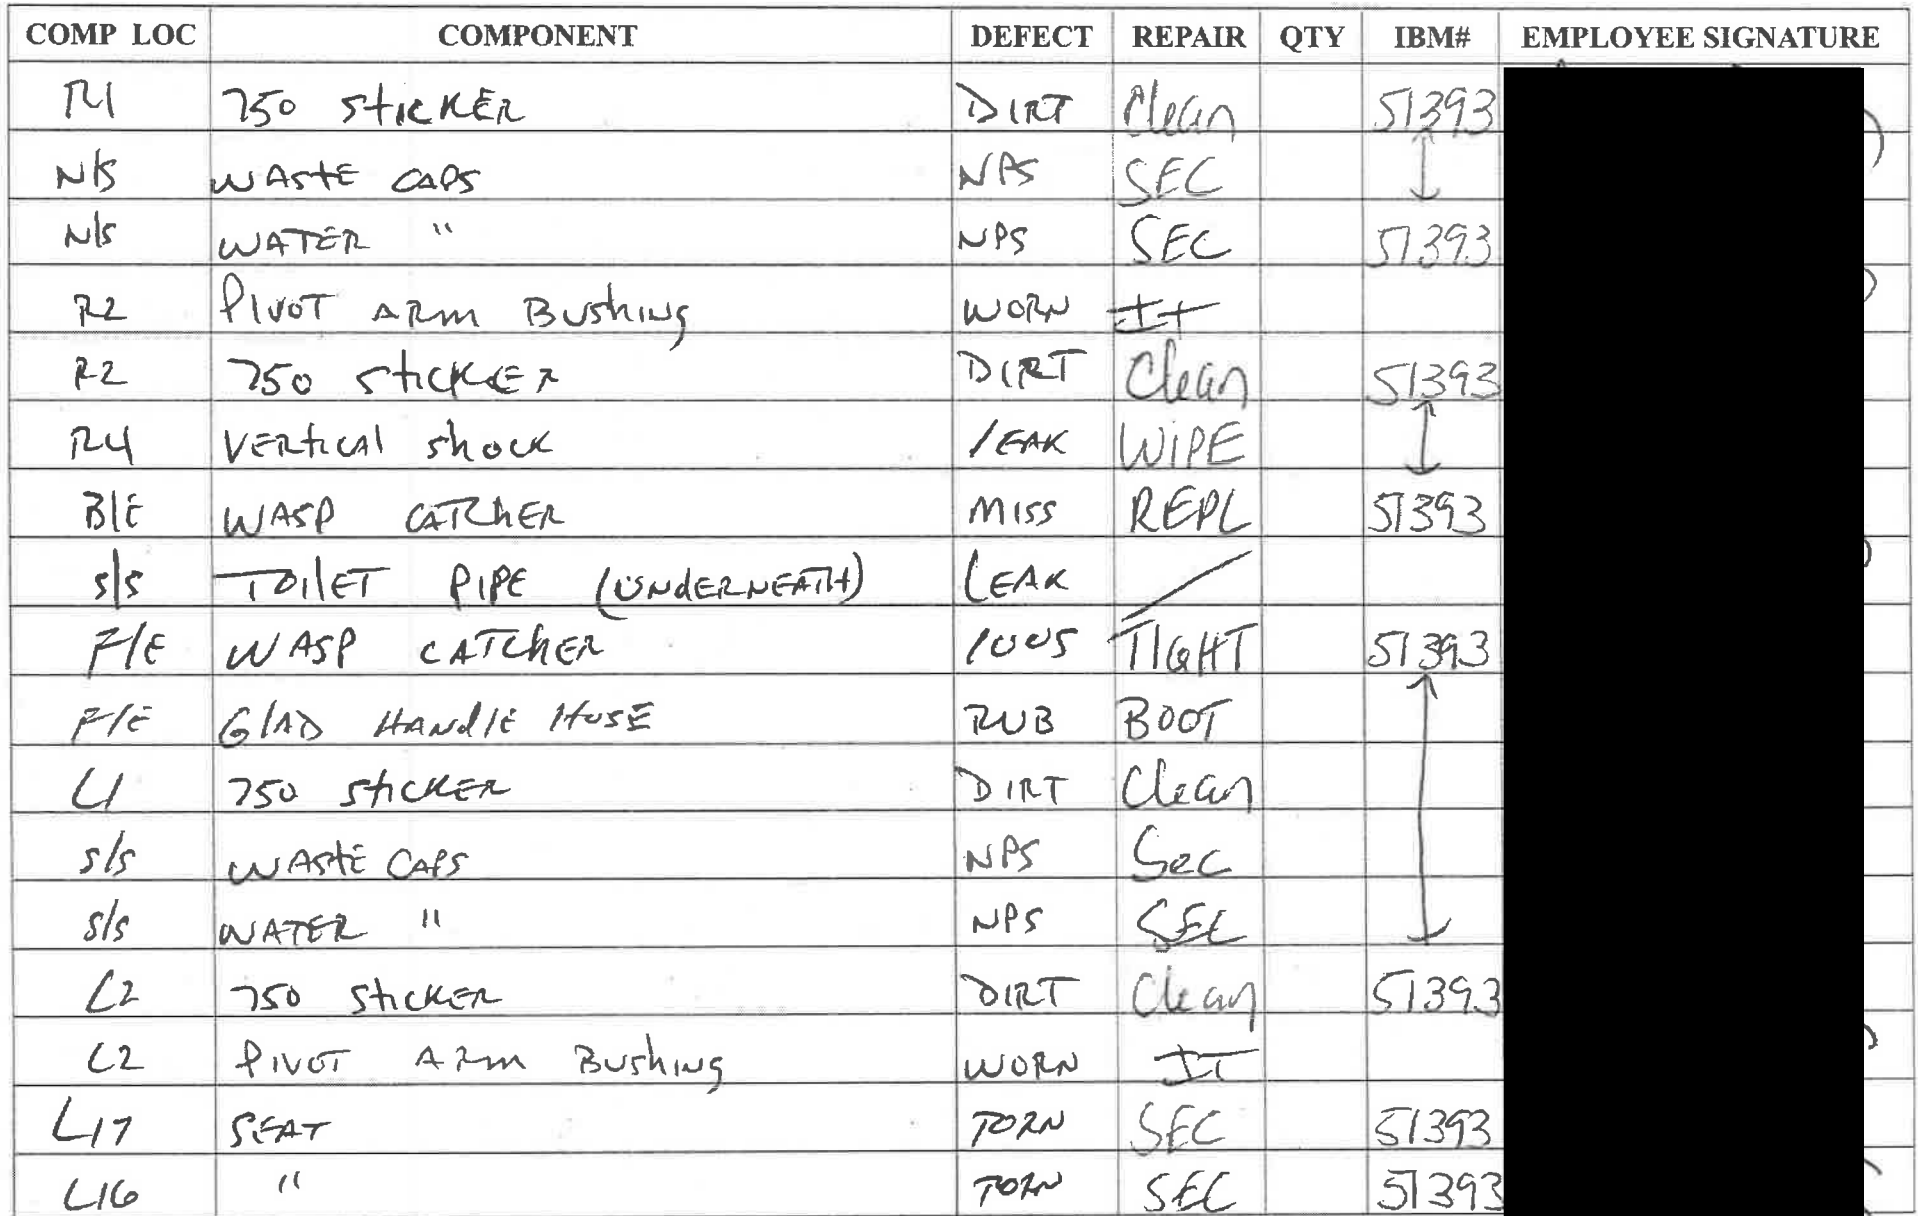 COMP LOC COMPONENT DEFECT REPAIR QTY IBM# EMPLOYEE SIGNATURE
R1 750 STICKER DIRT Clean 51393
N/S WASTE CAPS NPS SEC
N/S WATER " NPS SEC 51393
R2 PIVOT ARM BUSHING WORN
R2 750 STICKER DIRT Clean 51393
R4 VERTICAL SHOCK LEAK WIPE
B/E WASP CATCHER MISS REPL 51393
S/S TOILET PIPE (UNDERNEATH) LEAK
F/E WASP CATCHER LOOS TIGHT 51393
F/E GLAD HANDLE HOSE RUB BOOT
L1 750 STICKER DIRT Clean
S/S WASTE CAPS NPS Sec
S/S WATER " NPS SEC
L2 750 STICKER DIRT Clean 51393
L2 PIVOT ARM BUSHING WORN
L17 SEAT TORN SEC 51393
L16 " TORN SEC 51393